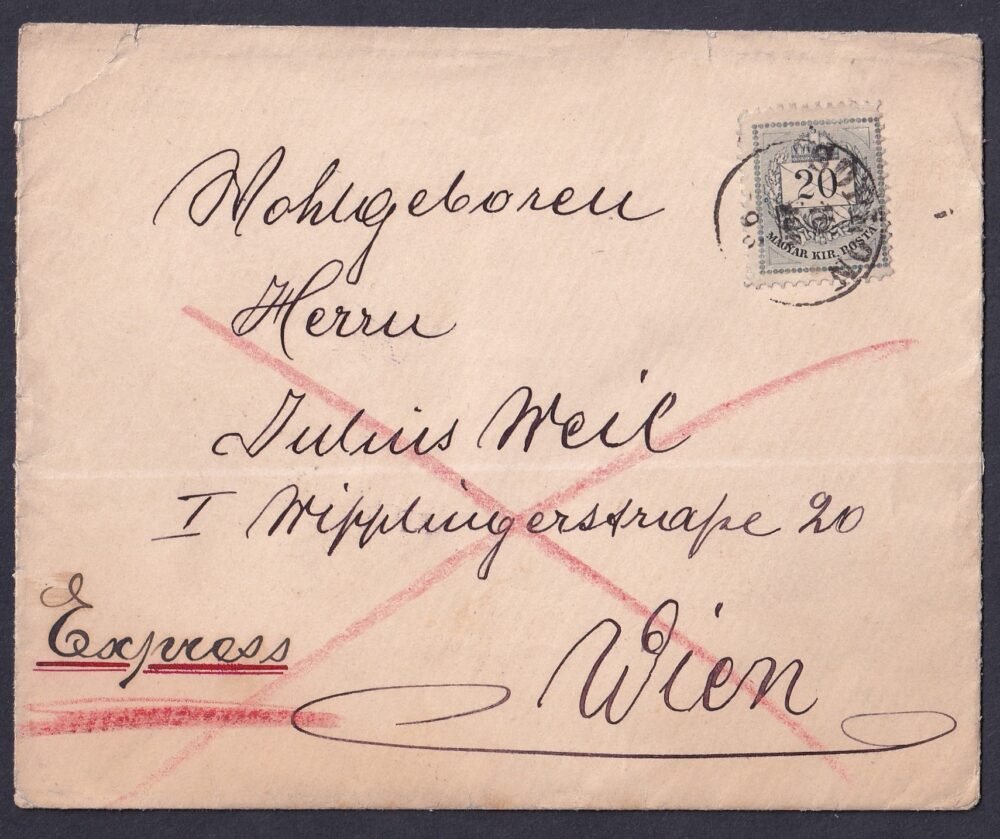 20
MAGYAR KIR. POSTA
Wohlgeboren
Herrn
Julius Weil
I Wipplingerstraße 20
Express
Wien